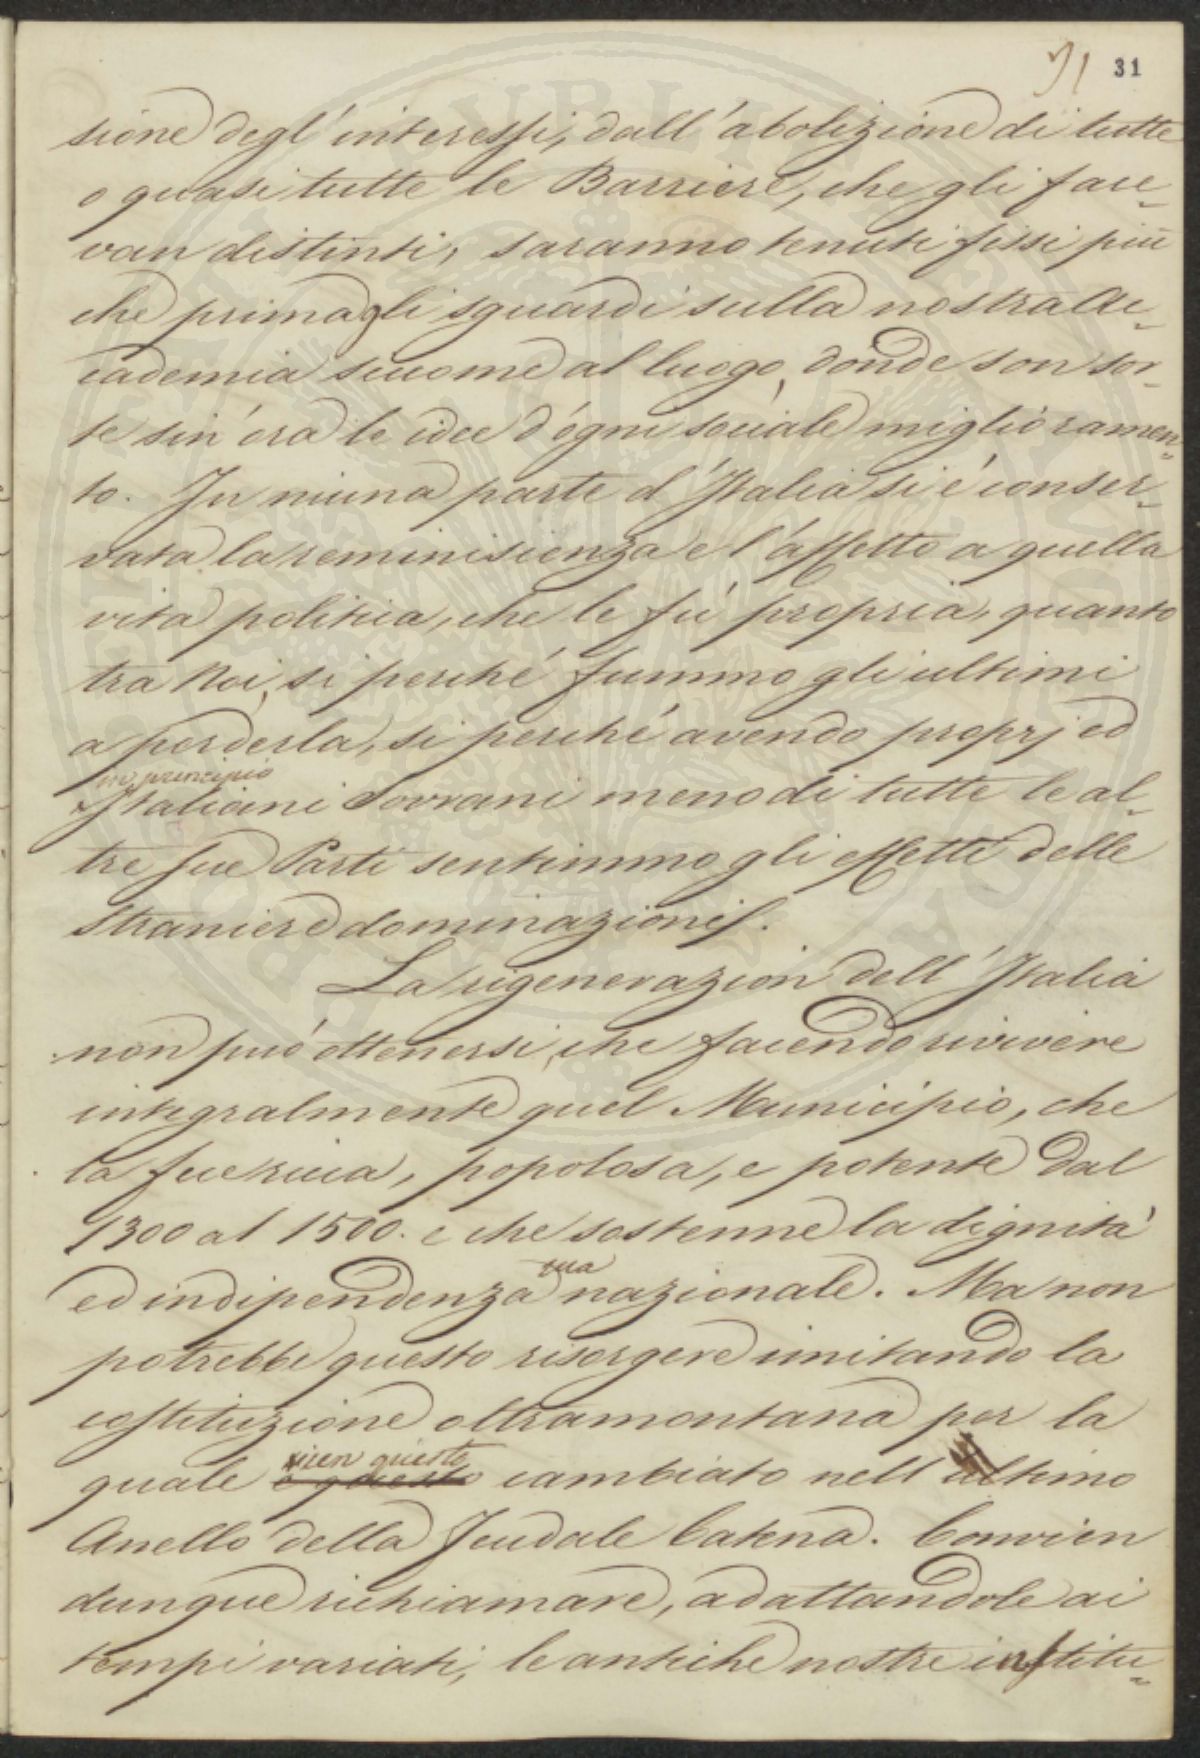 31 31
sione degl'interessi, dall'abolizione di tutte
o quasi tutte le Barriere, che gli face-
van distinti, saranno tenuti fissi più
che prima gli sguardi sulla nostra Ac-
cademia siccome al luogo, donde son sor-
te sin'ora le idee d'ogni sociale miglioramen-
to. In niuna parte d'Italia si è conser-
vata la reminiscenza e l'affetto a quella
vita politica, che le fù propria, quanto
tra Noi, si perché fummo gli ultimi
a perderla, si perché avendo proprj ed
in principio
Italiani Sovrani meno di tutte le al-
tre sue Parti sentimmo gli effetti delle
straniere dominazioni.
La rigenerazion dell'Italia
non può ottenersi, che facendo rivivere
integralmente quel Municipio, che
la fece ricca, popolosa, e potente dal
1300 al 1500. e che sostenne la dignità
sua
ed indipendenza nazionale. Ma non
potrebbe questo risorgere imitando la
costituzione oltramontana per la
vien questo
quale è questo cambiato nell'ultimo
Anello della feudale Catena. Convien
dunque richiamare, adattandole ai
tempi variati, le antiche nostre institu-